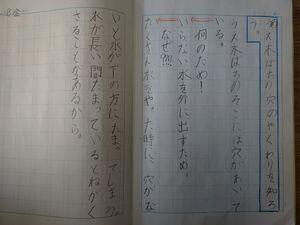 うえ木ばちの穴のやくわりを知ろ
う。
うえ木ばちのそこには穴があいて
いる。
何のため!
らない水を外に出すため。
なぜ!!!
たくさん水をや。た時に、穴がな
いと水が下の方にたま。てしまう。
水が長い間たまっているとねがく
さることがあるから。